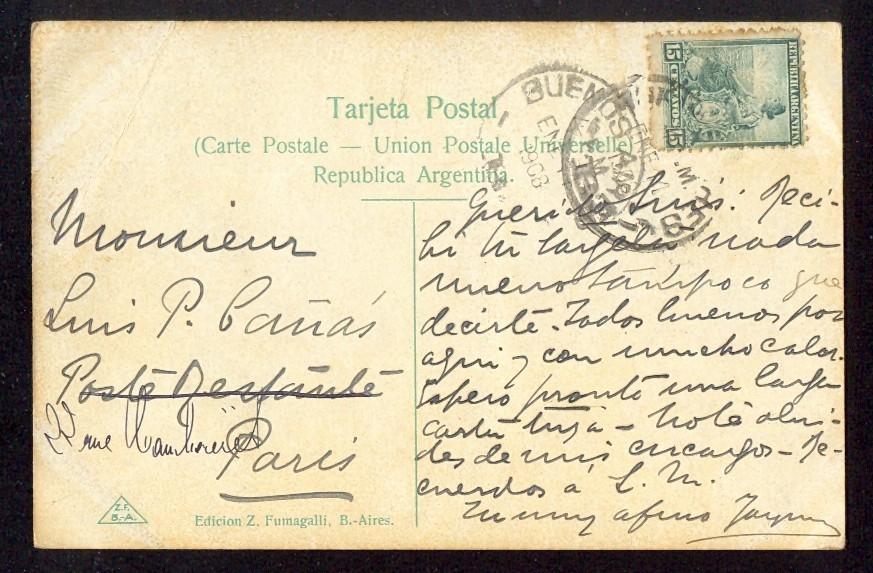 Tarjeta Postal
(Carte Postale — Union Postale Universelle)
Republica Argentina.
REPUBLICA ARGENTINA
15 CENTAVOS 15
BUENOS AIRES
ENE
1908
Monsieur
Luis P. Cañás
Poste Restante
22 rue
Paris
Querido Luis: Reci-
bí tu targeta nada
nuevo tampoco que
decirte. Todos buenos por
aquí y con mucho calor.
Espero pronto una larga
carta tuya – no te olvi-
des de mis encargos – Re-
cuerdos á L. M.
Tu muy afmo
Z.F.
B.-A.
Edicion Z. Fumagalli, B.-Aires.